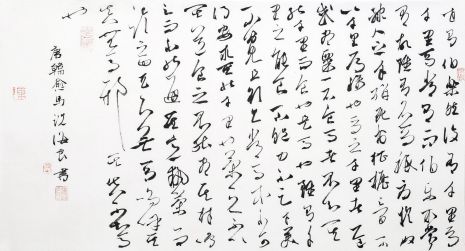 世有伯樂然後有千里馬
千里馬常有而伯樂不常
有故雖有名馬祗辱於奴
隸人之手駢死於槽櫪之間不
以千里稱也馬之千里者一食
或盡粟一石食馬者不知其
能千里而食也是馬也雖有千
里之能食不飽力不足才美
不外見且欲與常馬等不可
得安求其能千里也策之不以
其道食之不能盡其材鳴
之而不能通其意執策而
臨之曰天下無馬嗚呼其
真無馬邪其真不知馬
也
唐韓愈馬說海書